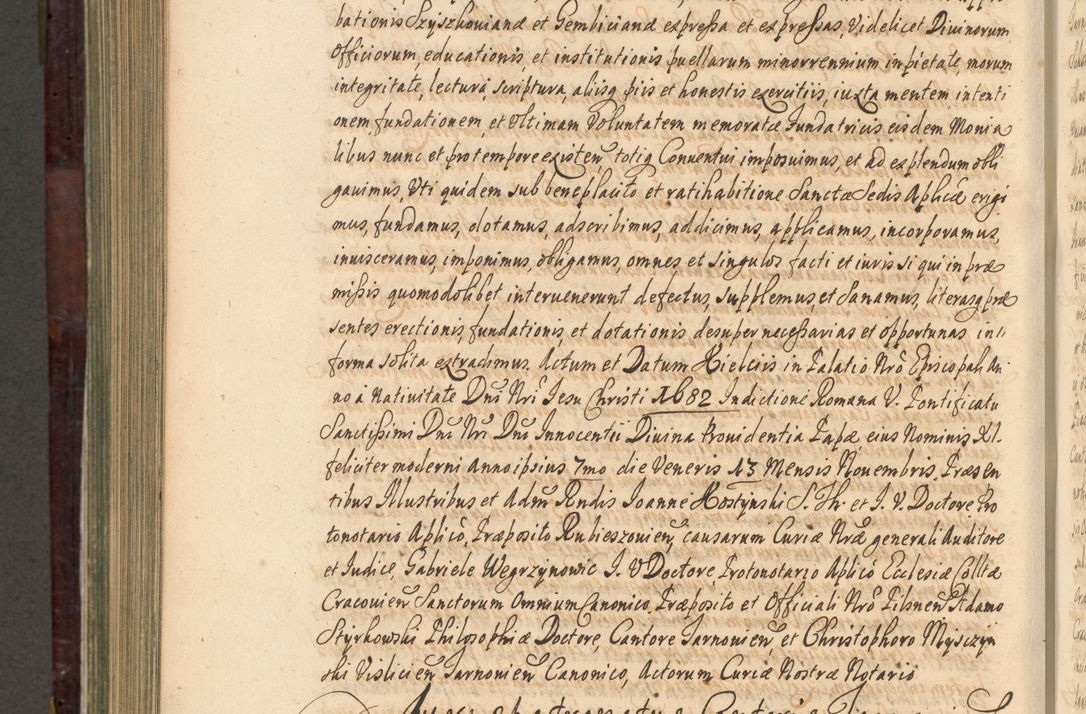 bationis Szyszkovianæ et Gembicianæ expressa et expressas, Videlicet Diuinorum
Officiorum, educationis, et institutionis puellarum minorennium in pietate, morum
integritate, lectura, scriptura, alijsq̃ pijs et honestis exercitijs, iuxta mentem intenti
onem fundationem, et Vltimam Voluntatem memoratæ Fundatricis eisdem Monia
libus nunc et pro tempore existeñ totiq̃ Conuentui imposuimus, et ad explendum obli
gauimus, Vti quidem sub beneplacito et ratihabitione Sanctæ Sedis Aplicæ erigi
mus, fundamus, dotamus, adscribimus, addicimus, applicamus, incorporamus,
inuisceramus, imponimus, obligamus, omnes et singulos facti et iuris si qui in præ
missis quomodolibet interuenerunt defectus, supplemus, et Sanamus, literasq̃ præ
sentes erectionis, fundationis, et dotationis desuper necessarias et opportunas in
forma solita extradimus. Actum et Datum Kielcijs in Palatio Nrõ Episcopali An
no a Natiuitate Dnĩ Nrĩ Jesu Christi 1682 Indictione Romana V. Pontificatu
Sanctissimi Dnĩ Nrĩ Dnĩ Innocentij Diuina Prouidentia Papæ eius Nominis XI.
feliciter moderni Anno ipsius 7mo die Veneris 13 Mensis Nouembris. Præsen
tibus Illustribus et Admũ Rndis Joanne Hostynski S. Th. et J. V. Doctore Pro
tonotario Aplicõ, Præposito Rubieszouieñ, causarum Curiæ Nræ generali Auditore
et Judice, Gabriele Wegrzynowic J. V Doctore Protonotario Aplicõ Ecclesiæ Colltæ
Cracouieñ Sanctorum Omnium Canonico, Præposito et Officiali Nrõ Pilsneñ Adamo
Styrkowski Philosophiæ Doctore, Cantore Tarnouieñ, et Christophoro Mysczyn
ski Vislicieñ Tarnouieñ Canonico, Actorum Curiæ Nostræ Notario